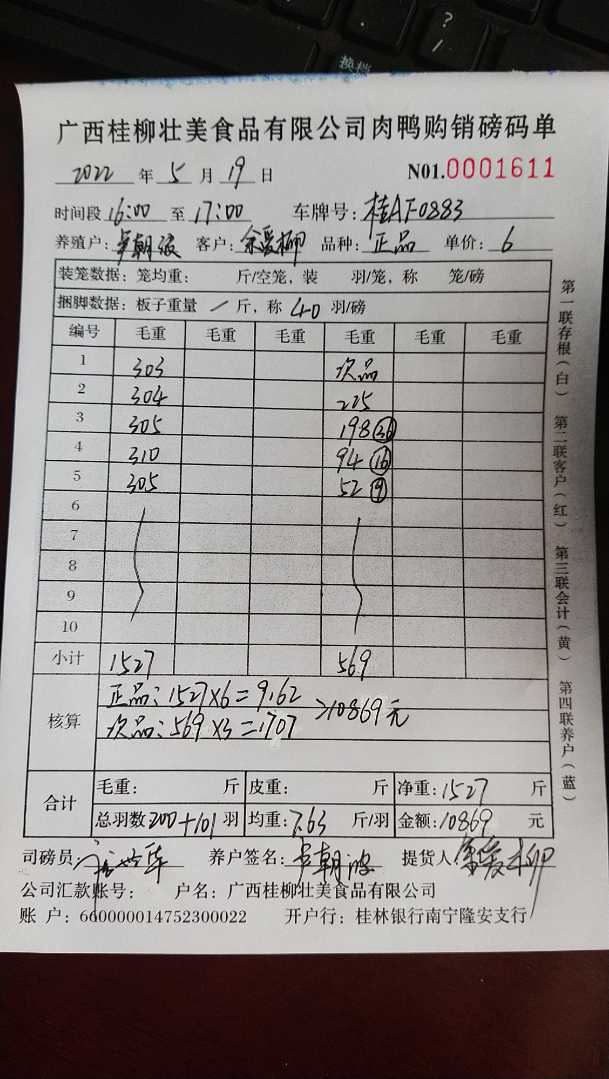 换档
?
/
广西桂柳壮美食品有限公司肉鸭购销磅码单
2022 年 5 月 19 日 N01.0001611
时间段 16:00 至 17:00 车牌号: 桂AF0883
养殖户: 朝波 客户: 余爱柳 品种: 正品 单价: 6
装笼数据: 笼均重: 斤/空笼, 装 羽/笼, 称 笼/磅
捆脚数据: 板子重量 / 斤, 称 40 羽/磅
编号 毛重 毛重 毛重 毛重 毛重 毛重
1 303 次品
2 304 225
3 305 198 36
4 310 94 16
5 305 52 9
6
7
8
9
10
小计 1527 569
正品: 1527×6=9162
核算 次品: 569×3=1707 >10869元
合计 毛重: 斤 皮重: 斤 净重: 1527 斤
总羽数 200+101 羽 均重: 7.63 斤/羽 金额: 10869 元
司磅员 养户签名: 朝波 提货人 余爱柳
公司汇款账号: 户名: 广西桂柳壮美食品有限公司
账 户: 660000014752300022 开户行: 桂林银行南宁隆安支行
第一联存根(白) 第二联客户(红) 第三联会计(黄) 第四联养户(蓝)